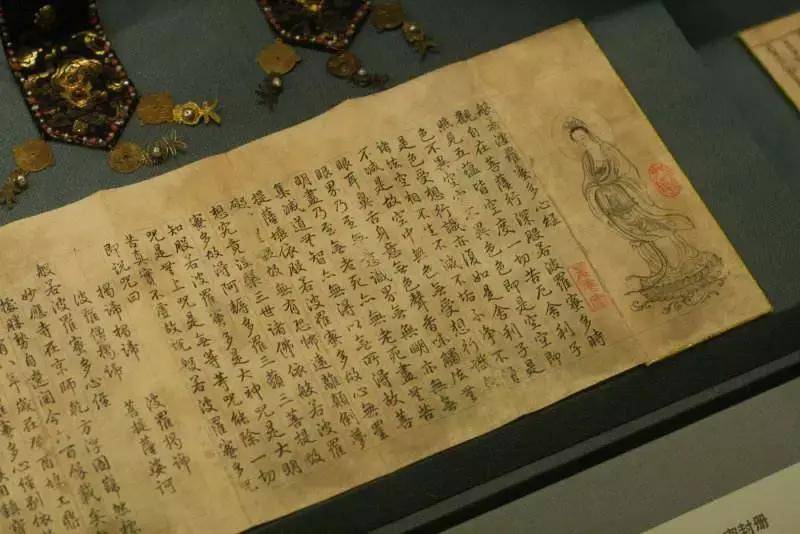 般若波羅蜜多心經
觀自在菩薩行深般若波羅蜜多時
照見五蘊皆空度一切苦厄舍利子
色不異空空不異色色即是空空即
是色受想行識亦復如是舍利子是
諸法空相不生不滅不垢不淨不增
不減是故空中無色無受想行識無
眼耳鼻舌身意無色聲香味觸法無
眼界乃至無意識界無無明亦無無
明盡乃至無老死亦無老死盡無苦
集滅道無智亦無得以無所得故菩
提薩埵依般若波羅蜜多故心無罣
礙無罣礙故無有恐怖遠離顛倒夢
想究竟涅槃三世諸佛依般若波羅
蜜多故得阿耨多羅三藐三菩提故
知般若波羅蜜多是大神咒是大明
咒是無上咒是無等等咒能除一切
苦真實不虛故說般若波羅蜜多咒
即說咒曰
揭諦揭諦 波羅揭諦
波羅僧揭諦 菩提薩婆訶
般若波羅蜜多心經
妙應寺在京師乾方浮圖
封册